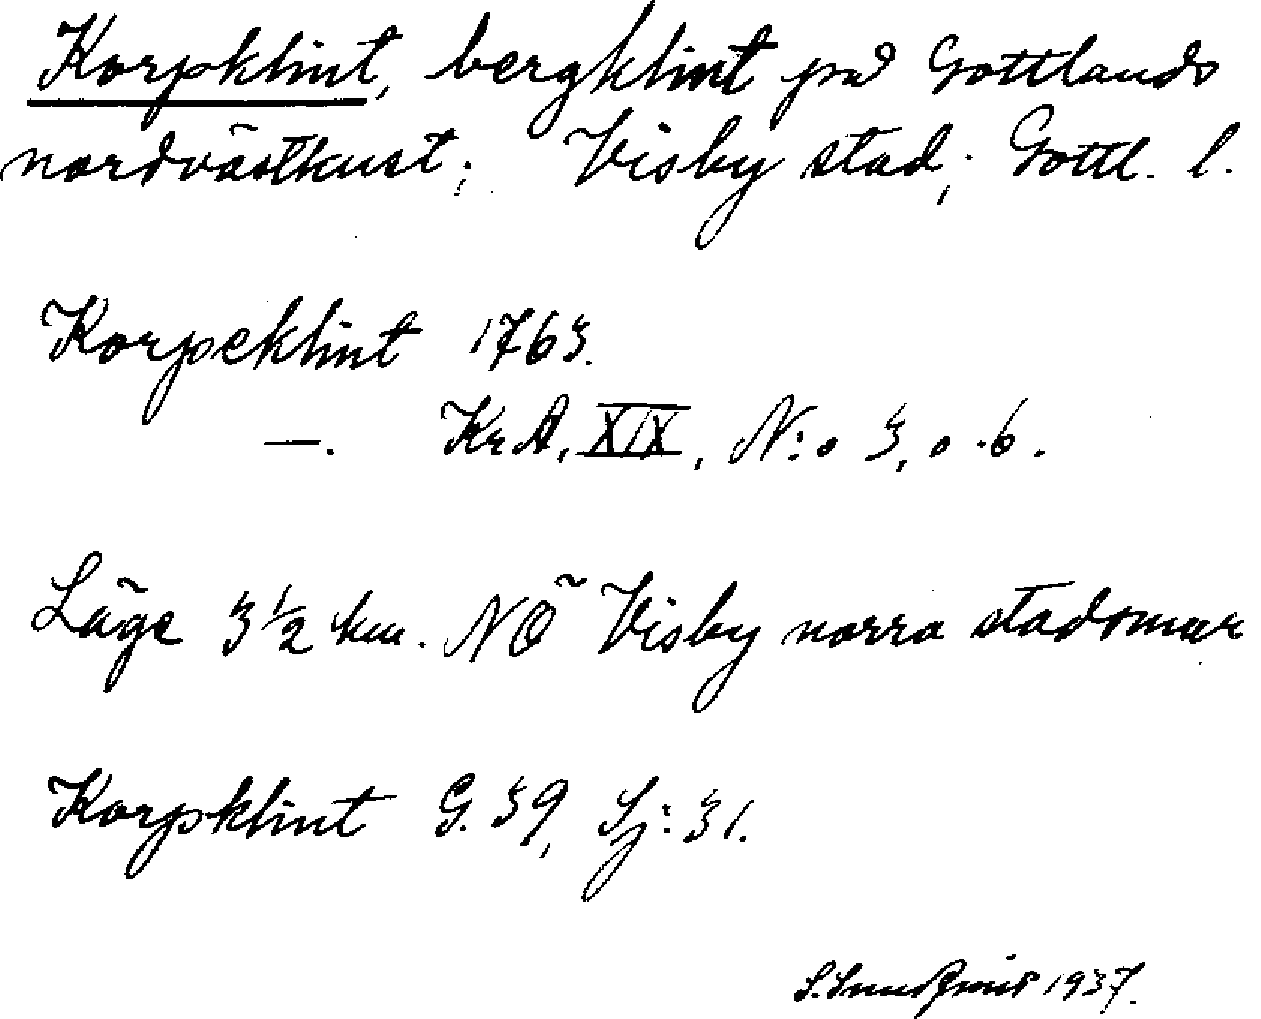 Korpklint, bergklint på Gottlands
nordvästkust; Visby stad; Gottl. l.
Korpeklint 1763.
—. KrA, XIX, N:o 3, o. 6.
Läge 3 1/2 km. NÖ Visby norra stadsmur
Korpklint G. 39, Sj: 31.
S. 1937.